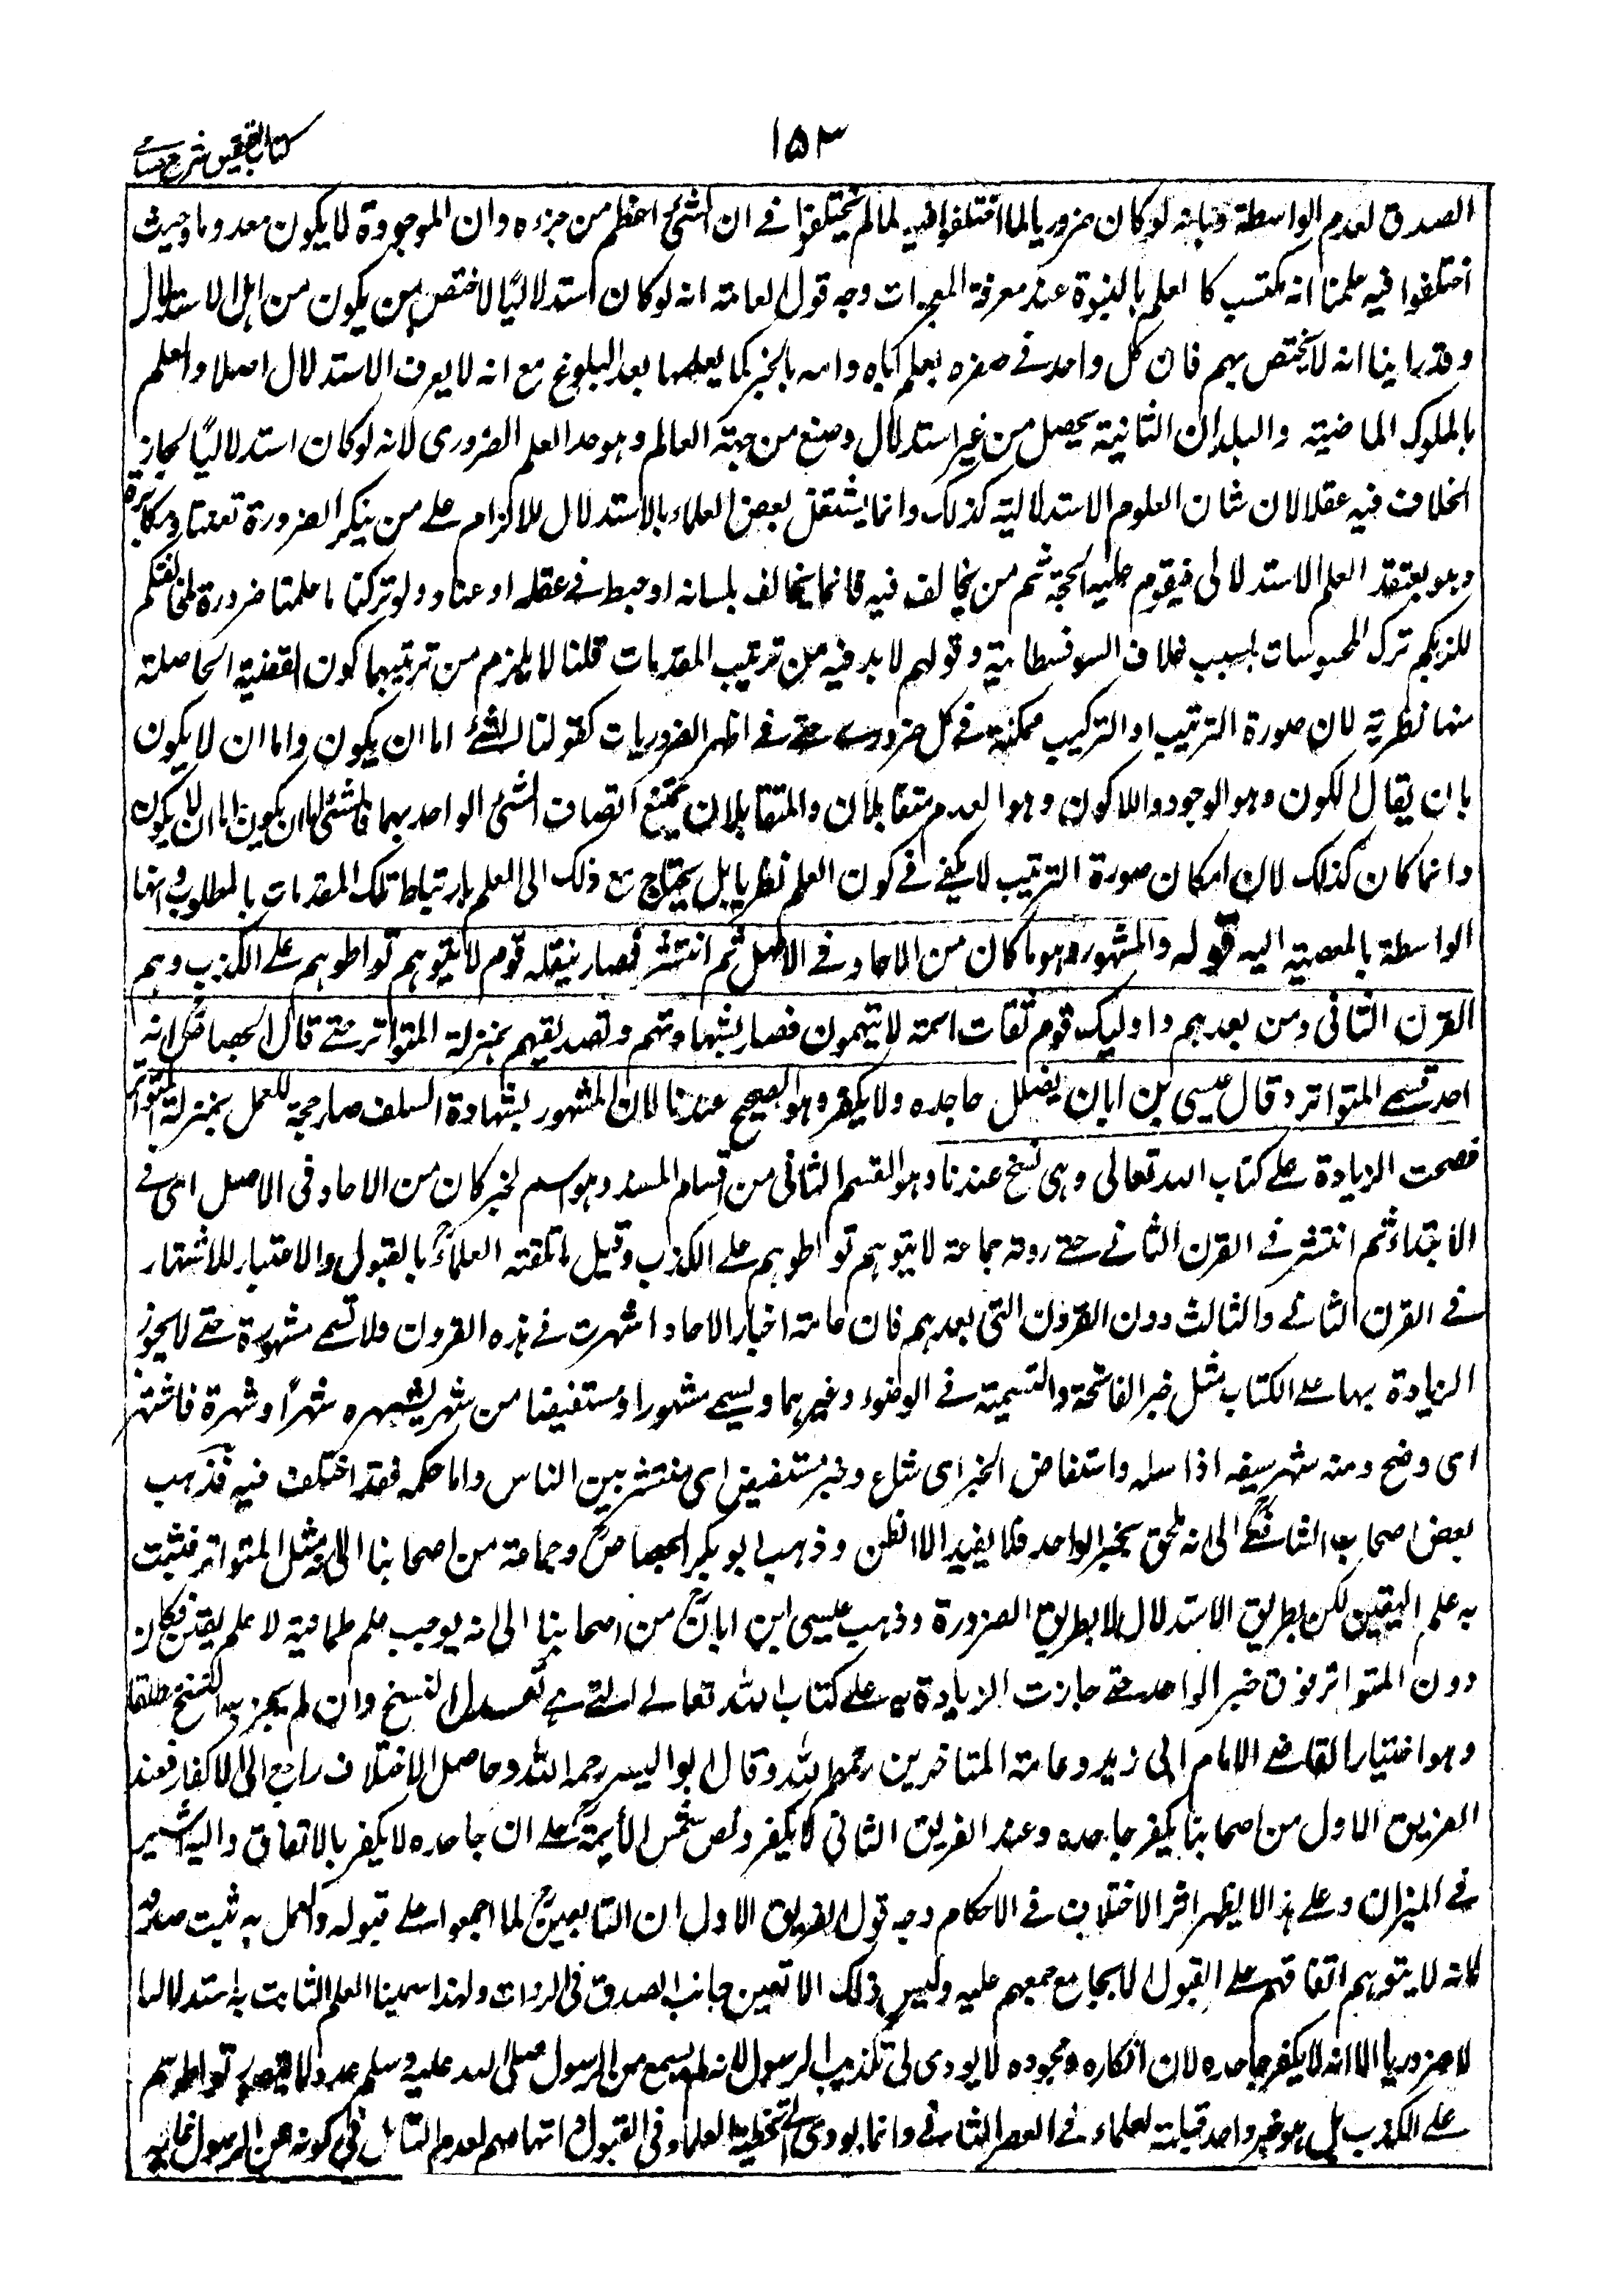 كتاب التحقيق شرح حسامے
١٥٣
الصدق لعدم الواسطة وبانه لو كان ضروريا لما اختلفوا فيه لما لم يختلفوا فے ان الشئ اعظم من جزءه وان الموجودة لا يكون معدوما وحيث
اختلفوا فيه علمنا انه مكتسب كا لعلم بالنبوة عند معرفة المعجزات وجه قول العامته انه لو كان استدلاليًا لاختص بمن يكون من اهل الاستدلال
وقد راينا انه لا يختص بهم فان كل واحد فے صغره يعلم اباه وامه بالخبر كما يعلمها بعد البلوغ مع انه لا يعرف الاستدلال اصلا والعلم
بالملوك الماضيته والبلدان النائية يحصل من غير استدلال وصنع من جهته العالم وهو حد العلم الضرورى لانه لو كان استدلاليًا لجاز
الخلاف فيه عقلا لان شان العلوم الاستدلاليته كذلك وانما يشتغل بعض العلماء بالاستدلال للالزام علے من ينكر الضرورة تعنتا ومكابرة
وهو يعتقد العلم الاستدلالى فيقوم عليه الحجة ثم من يخالف فيه فانما يخالف بلسانه او خبط فے عقله او عناد ولو تركنا ما علمنا ضرورة لمخالفتكم
للزمكم ترك المحسوسات بسبب خلاف السوفسطائية وقولهم لابد فيه من ترتيب المقدمات قلنا لا يلزم من ترتيبهما كون القضية الحاصلته
منها نظريته لان صورة الترتيب او التركيب ممكنة فے كل ضرورے حتے فے اظهر الضروريات كقولنا الشئ اما ان يكون واما ان لا يكون
بان يقال الكون وهو الوجود واللاكون وهو العدم متقابلان والمتقابلان يمتنع اتصاف الشئ الواحد بهما فالشئ اما ان يكون اما ان لا يكون
وانما كان كذلك لان امكان صورة الترتيب لا يكفے فے كون العلم نظريا بل يحتاج مع ذلك الى العلم بارتباط تلك المقدمات بالمطلوب وانها
الواسطة بالمفضية اليه قوله والمشهور وهو ما كان من الاحاد فے الاصل ثم انتشر فصار ينقله قوم لا يتوهم تواطوهم علے الكذب وهم
القرن الثانى ومن بعدهم واوليك قوم ثقات ائمته لا يتهمون فصار بشهادتهم وتصديقهم بمنزلة المتواتر حتے قال الجصاصؒ انه
احد قسمے المتواتر وقال عيسى بن ابان يضلل جاحده ولا يكفر وهو الصحيح عندنا لان المشهور بشهادة السلف صار حجة للعمل بمنزلة المتواتر
فصحت الزيادة علے كتاب الله تعالى وهى نسخ عندنا وهو القسم الثانى من اقسام المسند وهو اسم لخبر كان من الاحاد فى الاصل اى فے
الابتداء ثم انتشر فے القرن الثانے حتے روته جماعته لا يتوهم تواطوهم علے الكذب وقيل ما تلقته العلماءؒ بالقبول والاعتبار للاشتهار
فے القرن الثانے والثالث دون القرون التى بعدهم فان عامته اخبار الاحاد اشتهرت فے هذه القرون ولا تسمے مشهورة حتے لا يجوز
الزيادة بها علے الكتاب مثل خبر الفاتحة والتسمية فے الوضوء وغيرهما ويسمے مشهورا ومستفيضا من شهر يشهره شهرًا وشهرة فاشتهر
اى وضح ومنه شهر سيفه اذا سله واستفاض الخبر اى شاع وخبر مستفيض اى منتشر بين الناس واما حكمه فقد اختلف فيه فذهب
بعض اصحاب الشافعےؒ الى انه ملحق بخبر الواحد فلا يفيد الا الظن وذهب ابو بكر الجصاصؒ وجماعته من اصحابنا الى انه مثل المتواتر فيثبت
به علم اليقين لكن بطريق الاستدلال لا بطريق الضرورة وذهب عيسى ابن ابانؒ من اصحابنا الى انه يوجب علم طمانية لا علم يقين فكان
دون المتواتر فوق خبر الواحد حتے جازت الزيادة به علے كتاب الله تعالے التے هے تعدل النسخ وان لم يجز به النسخ مطلقا
وهو اختيار القاضے الامام ابى زيد وعامته المتاخرين رحمهم الله وقال ابو اليسر رحمه الله وحاصل الاختلاف راجع الى الاكفار فعند
الفريق الاول من اصحابنا يكفر جاحده وعند الفريق الثانى لا يكفر ونص شمس الأيمةؒ علے ان جاحده لا يكفر بالاتفاق واليه اشير
فے الميزان وعلے هذا لا يظهر اثر الاختلاف فے الاحكام وجه قول الفريق الاول ان التابعينؒ لما اجمعوا علے قبوله والعمل به ثبت صدقه
لانه لا يتوهم اتفاقهم علے القبول الا بجامع جمعهم عليه وليس ذلك الا تعين جانب الصدق فى الروات ولهذا سمينا العلم الثابت به استدلاليا
لا ضروريا الا انه لا يكفر جاحده لان انكاره وجحوده لا يودى الى تكذيب الرسول لانه لم يسمع من الرسول صلى الله عليه وسلم عدد لا يتصور تواطوهم
علے الكذب بل هو خبر واحد قبلته العلماء فے العصر الثانے وانما يودى الے تخطية العلماء فى القبول واتهامهم لعدم التامل فى كونه عن الرسول غاية